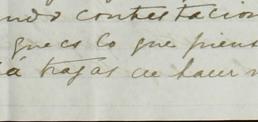 ndo contestacion
que es lo que piens
á trajas de hacer